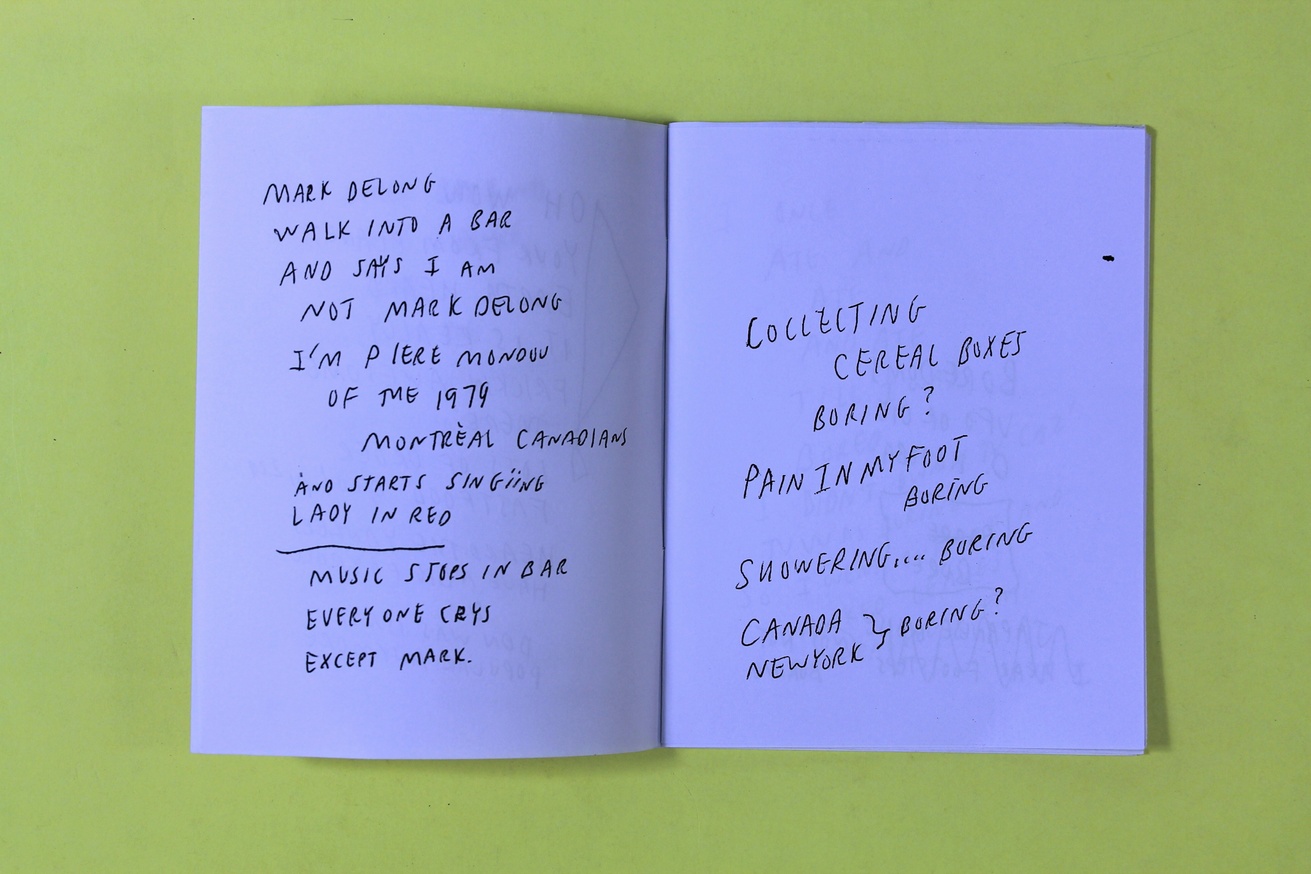 MARK DELONG
WALK INTO A BAR
AND SAYS I AM
NOT MARK DELONG
I'M PIERE MONDOU
OF THE 1979
MONTRÈAL CANADIANS
AND STARTS SINGiiNG
LADY IN RED
MUSIC STOPS IN BAR
EVERYONE CRYS
EXCEPT MARK.
COLLECTING
CEREAL BOXES
BORING?
PAIN IN MY FOOT
BORING
SHOWERING.... BORING
CANADA } BORING?
NEWYORK